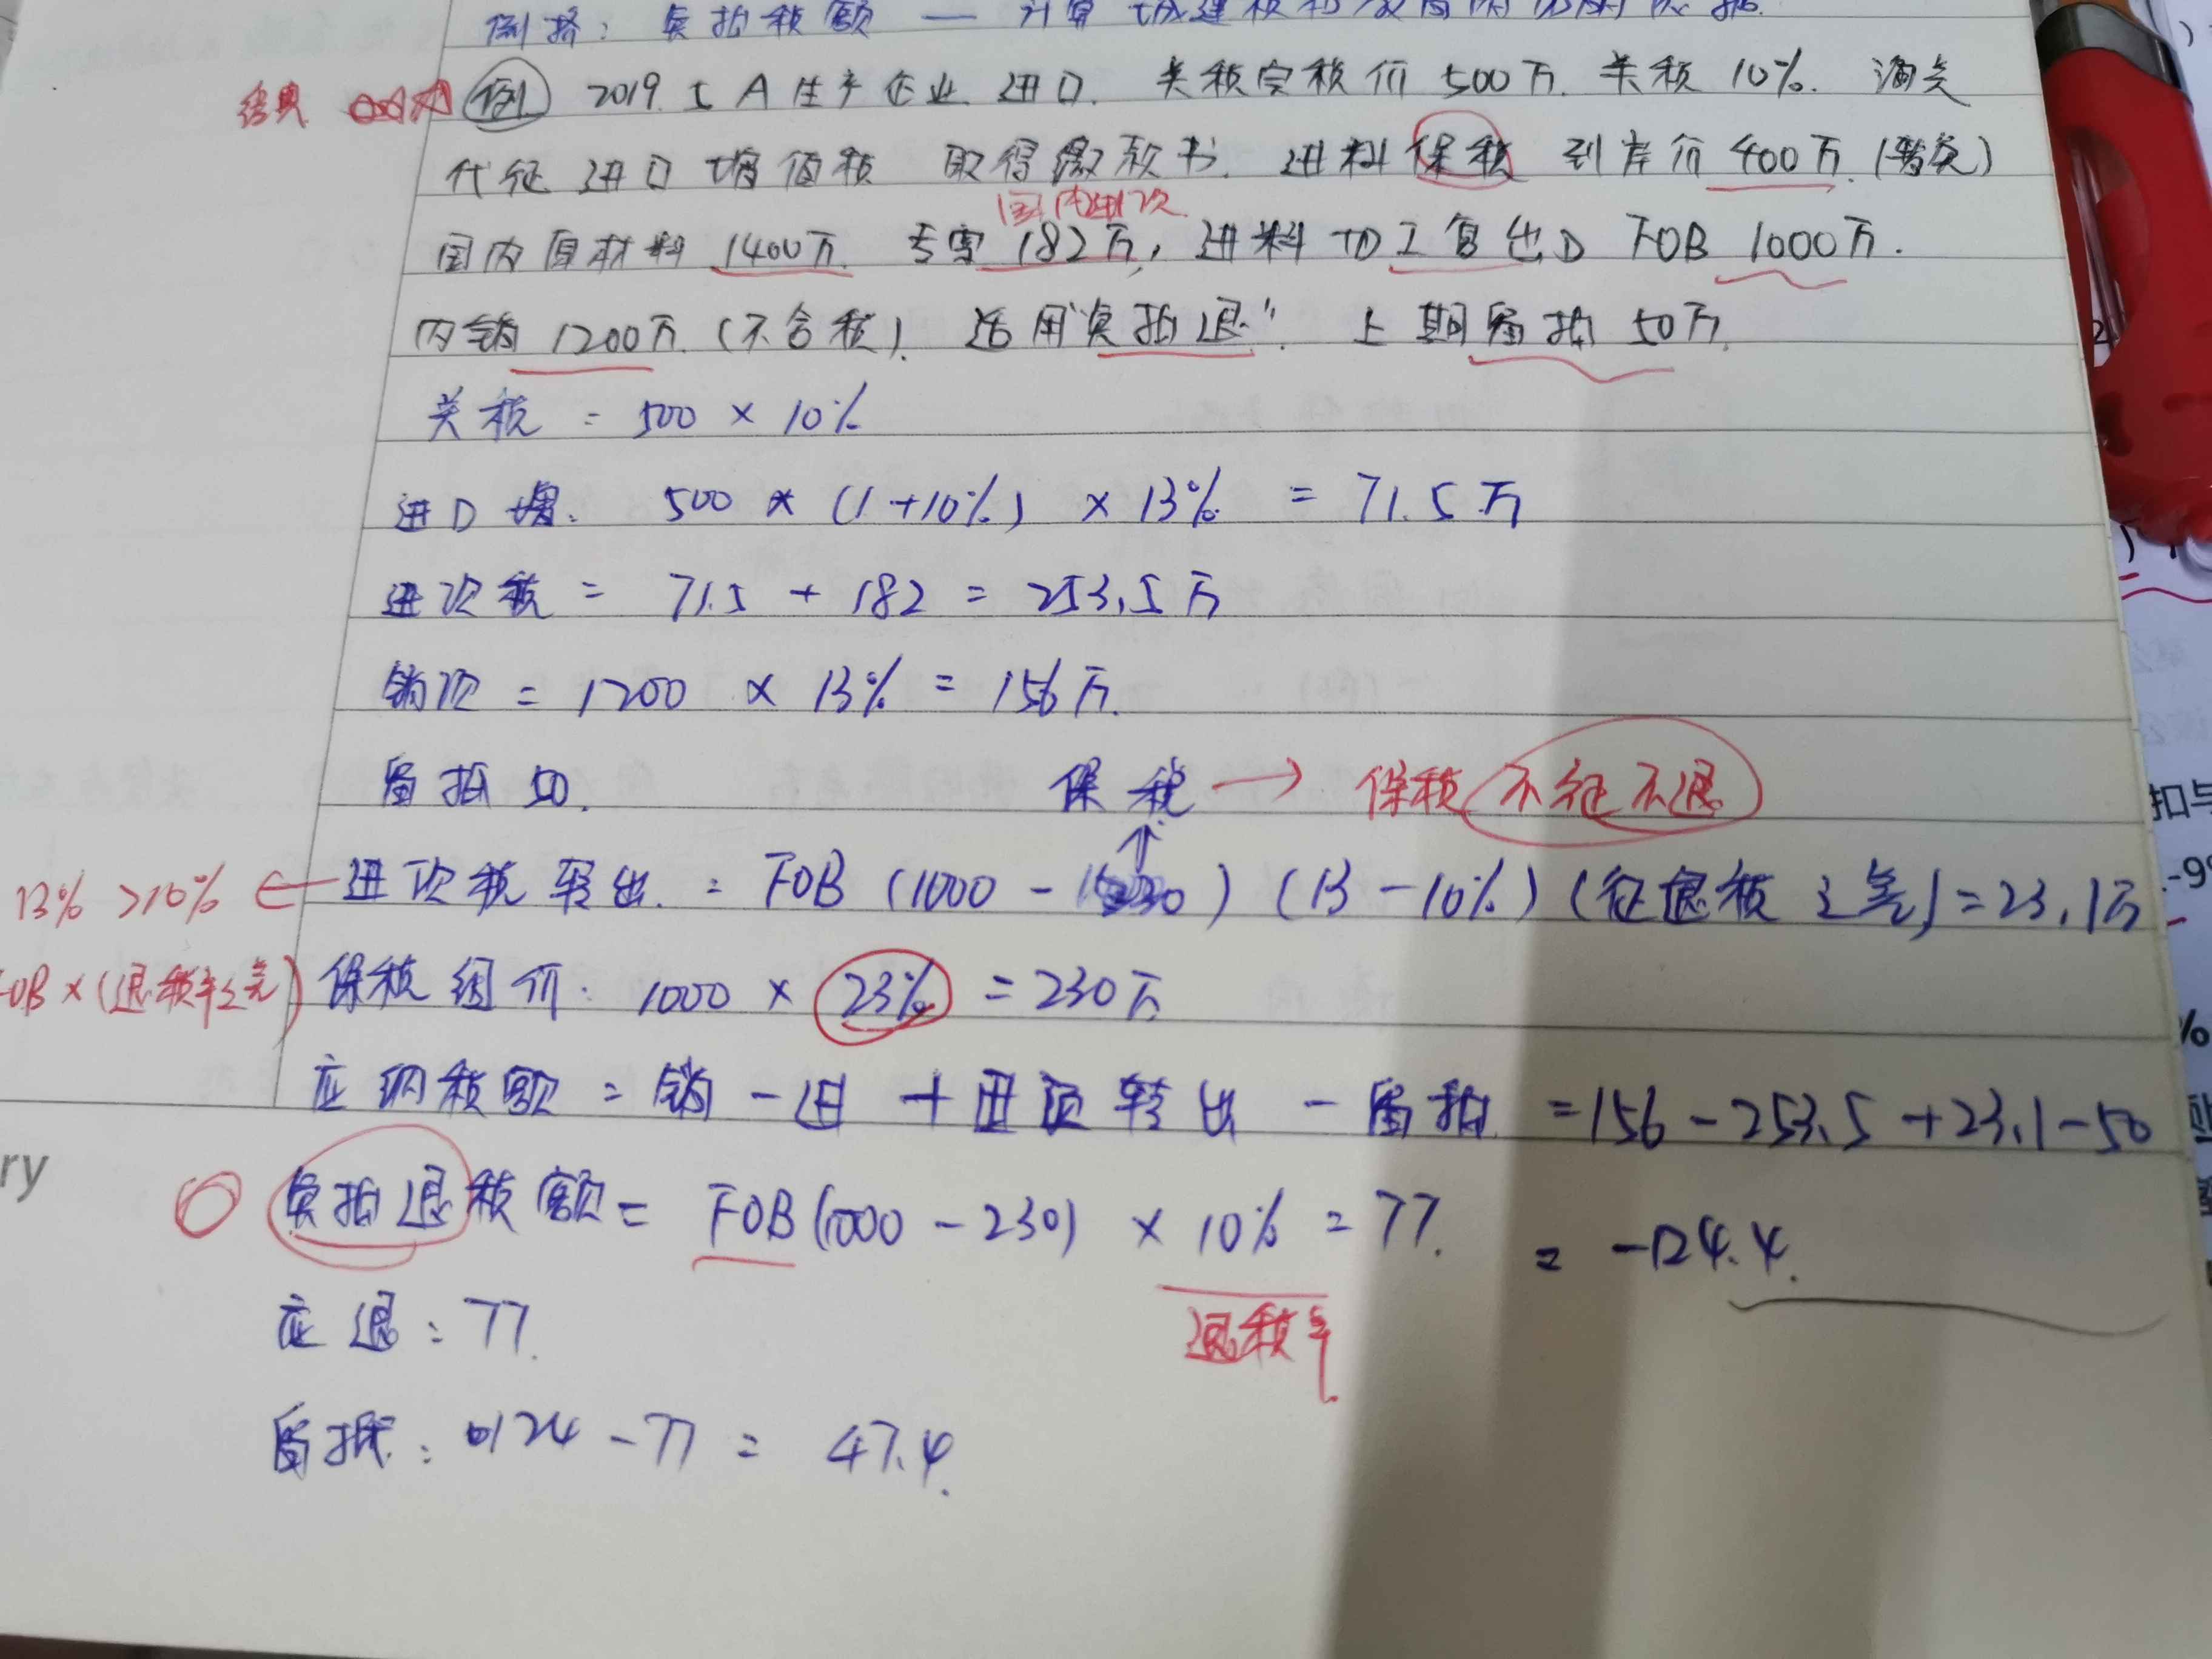 例 2019.5 A生产企业 进口. 关税完税价 500万. 关税 10%. 海关
代征进口增值税 取得缴款书. 进料保税 到岸价 400万.(暂免)
国内进项
国内原材料 1400万. 专票 182万, 进料加工复出口 FOB 1000万.
内销 1200万.(不含税). 适用"免抵退". 上期留抵 50万.
关税 = 500 × 10%
进口增. 500 × (1+10%) × 13% = 71.5万
进项税 = 71.5 + 182 = 253.5万
销项 = 1200 × 13% = 156万.
留抵 50. 保税 → 保税 不征不退
13% >10% ← 进项税转出. = FOB (1000 - 230) (13-10%) (征退税之差) = 23.1万
FOB × (退税率之差) 保税组价. 1000 × 23% = 230万
应纳税额 = 销 - 进 + 进项转出 - 留抵 = 156 - 253.5 + 23.1 - 50
ry
免抵退税额 = FOB (1000 - 230) × 10% = 77. = -124.4.
退税率
应退: 77.
留抵: 124 - 77 = 47.4.
扣与
%